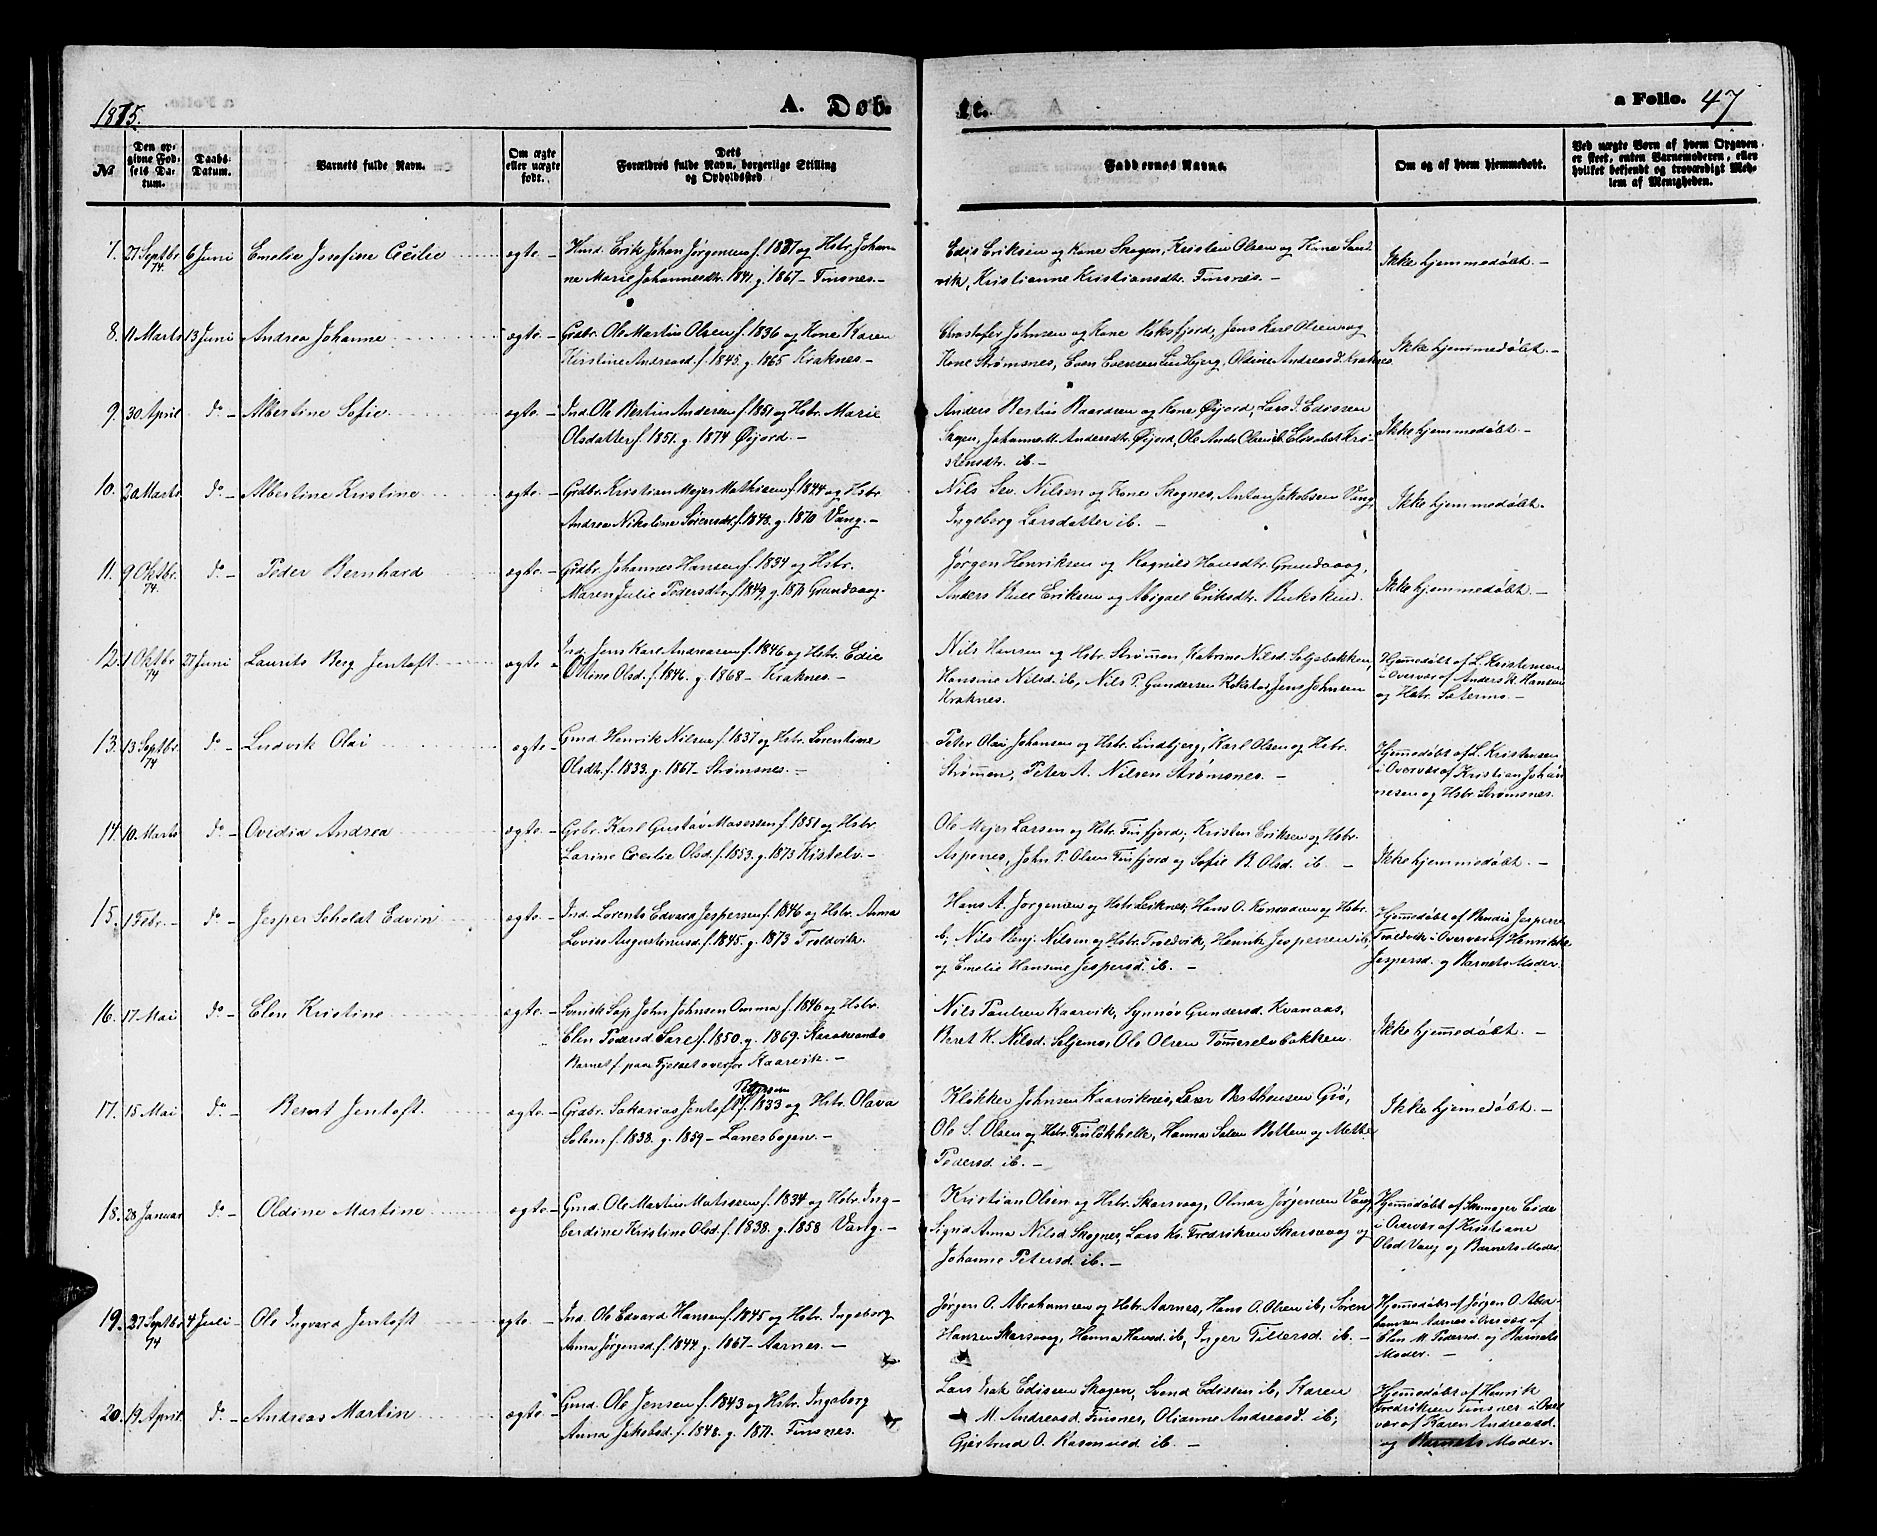 1875.
A. Døb-
te.
a Folio. 47
№
Den op-
givne Fød-
sels Da-
tum.
Daabs-
Datum.
Barnets fulde Navn.
Om ægte
eller uægte
født.
Dets
Forældres fulde Navn, borgerlige Stilling
og Opholdssted.
Faddernes Navne.
Om og af hvem hjemmedøbt.
Ved uægte Børn af hvem Opgaven
er skeet, enten Barnemoderen, eller
hvilket bekjendt og troværdigt Med-
lem af Menigheden.
7. 27 Septbr 74. 6 Juni Emelie Josefine Cecilie ægte.
Erik Johan Jørgensen f. 1837 og Hstr. Johan-
ne Marie Johannesdtr. 1841. g. 1867 - Finsnes.
Edis Eriksen og Kone Skogen, Kristen Olsen og Kone Sand-
vik, Kristianne Kristiansdtr. Finsnes. -
Ikke hjemmedøbt. -
8. 11 Marts 13 Juni Andrea Johanne ægte.
Grdbr. Ole Martin Olsen f. 1836 og Kone Karen
Kristine Andreasd. f. 1845. g. 1865 Kraknes -
Christofer Johnsen og Kone Hoksfjord, Jens Karl Olsen og
Kone Strømsnes, Even Evensen Lindbjerg, Oline Andreasd. Kraknes
Ikke hjemmedøbt. -
9. 30 April do - Albertine Sofie ægte.
Ind. Ole Bertin Andersen f. 1851 og Hstr. Marie
Olsdatter f. 1851. g. 1874 Øijord. -
Anders Bertin Baardsen og Kone Øijord, Lars I. Edissen
Skogen, Johanne M. Andersdtr. Øijord, Ole Ands. Olsen ib. Elisabet Kri-
stensdtr. ib. -
Ikke hjemmedøbt. -
10. 20 Marts do - Albertine Kristine ægte.
Grdbr. Kristian Mejer Mathisen f. 1844 og Hstr.
Andrea Nikoline Sørensdt. f. 1848. g. 1870 Vang. -
Nils Sev. Nilsen og Kone Skognes, Anton Jakobsen Vang,
Ingeborg Larsdatter ib. -
Ikke hjemmedøbt.
11. 9 Oktbr. 74. do - Peder Bernhard ægte.
Grdbr. Johannes Hansen f. 1834 og Hstr.
Maren Julie Pedersdtr. f. 1849, g. 1871 Grundvaag.
Jørgen Henriksen og Ragnild Hansdtr. Grundvaag,
Anders Bull Eriksen og Abigael Eriksdtr. Bukskin.
Ikke hjemmedøbt. -
12. 1 Oktbr 74 27 Juni Laurits Berg Jentoft ægte
Ind. Jens Karl Andreasen f. 1846 og Hstr. Edie
Oline Olsd. f. 1846. g. 1868 - Kraknes. -
Nils Hansen og Hstr. Strømmen, Katrine Nilsd. Seljebakken,
Hansine Nilsd. ib, Nils P. Gundersen Rokstad, Jens Johnsen
Kraknes.
Hjemmedøbt af L. Kristensen
i Overvær af Anders R. Hansen
og Hstr. Sætermo. -
13. 13 Septbr. 74 do - Ludvik Olai ægte
Gmd. Henrik Nilsen f. 1837 og Hstr. Lorentine
Olsdtr. f. 1833. g. 1867 - Strømsnes. -
Peter Olai Johansen og Hstr. Lindbjerg, Karl Olsen og Hstr.
Strømmen, Peter A. Nilsen Strømsnes. -
Hjemmedøbt af L. Kristensen
i Overvær af Kristian Johan-
nesen og Hstr. Strømsnes.
14. 10. Marts do - Ovidia Andrea ægte.
Grbr. Karl Gustav Mosessen f. 1851 og Hstr.
Larine Cecilie Olsd. f. 1853. g. 1873 Kistelv. -
Ole Mejer Larsen og Hstr. Finfjord, Kristen Eriksen og Hstr.
Aspenes, John P. Olsen Finfjord og Sofie B. Olsd. ib. -
Ikke hjemmedøbt. -
15. 1 Febr. - do - Jesper Scholdt Edvin ægte -
Ind. Lorents Edvard Jespersen f. 1846 og Hstr. Anna
Lovise Augustinusd. f. 1845. g. 1873 Troldvik.
Hans A. Jørgensen og Hstr. Leiknes, Hans O. Konradsen og Hstr.
ib, Nils Benj. Nilsen og Hstr. Troldvik, Henrik Jespersen ib,
og Emelie Hansine Jespersd. ib. -
Hjemmedøbt af Jespersen
Troldvik i Overvær af Henrikke
Jespersd. og Barnets Moder.
16. 17 Mai do - Elen Kristine ægte. -
Svensk Lap John Johnsen Omma f. 1846 og Hstr.
Elen Pedersd. Sare f. 1850. g. 1869. Karesuando
Barnet f. paa Fjeldet overfor Kaarvik. -
Nils Paulsen Kaarvik, Synnøv Gundersd. Kvanaas,
Beret K. Nilsd. Seljemo, Ole Olsen Tømmerelvbakken.
Ikke hjemmedøbt. -
17. 15 Mai do - Bernt Jentoft. ægte -
Grdbr. Sakarias Jentoft Pedersen f. 1833 og Hstr. Olava
Solem f. 1838. g. 1859 - Lanesbogen. -
Klokker Johnsen Kaarviknes, Lars Berthensen Gjø,
Ole S. Olsen og Hstr. Finlokhelle, Hanna Solem Botten og Mette
Pedersd. ib. -
Ikke hjemmedøbt. -
18. 28 Januar do - Oldine Martine ægte -
Gmd. Ole Martin Matissen f. 1834 og Hstr. Ing-
berdine Kristine Olsd. f. 1838. g. 1858 Vang. -
Kristian Olsen og Hstr. Skarsvaag, Olmar Jørgensen Vang,
Signe Anna Nilsd. Skognes, Lars Kr. Fredriksen Skarsvaag og
Johanne Petersd. ib. -
Hjemmedøbt af Skomager Eide
i Overvær af Kristiane
Olsd Vang og Barnets Moder.
19. 27 Septbr 74 4 Juli - Ole Ingvard Jentoft ægte. -
Ind. Ole Edvard Hansen f. 1845 og Hstr. Ingeborg
Anna Jørgensd. f. 1844. g. 1867 - Aarnes. -
Jørgen O. Abrahamsen og Hstr. Aarnes, Hans O. Olsen ib, Søren
Hansen Skarsvaag, Hanna Hansd. ib, Inger Pedersd. ib. -
Hjemmedøbt af Jørgen O. Abra-
hamsen Aarnes i Overvær af
Elen M. Pedersd. og Barnets
Moder. -
20. 19. April do - Andreas Martin ægte -
Gmd. Ole Jensen f. 1843 og Hstr. Ingeborg
Anna Jakobsd. f. 1848. g. 1871. Finsnes.
Lars Isak Edissen Skogen, Svend Edissen ib, Karen
M. Andreasd. Finsnes, Olianne Andreasd. ib;
Gjertrud O. Rasmusd. ib. -
Hjemmedøbt af Henrik
Fredriksen Finsnes i Over-
vær af Karen Andreasd.
og Barnets Moder.